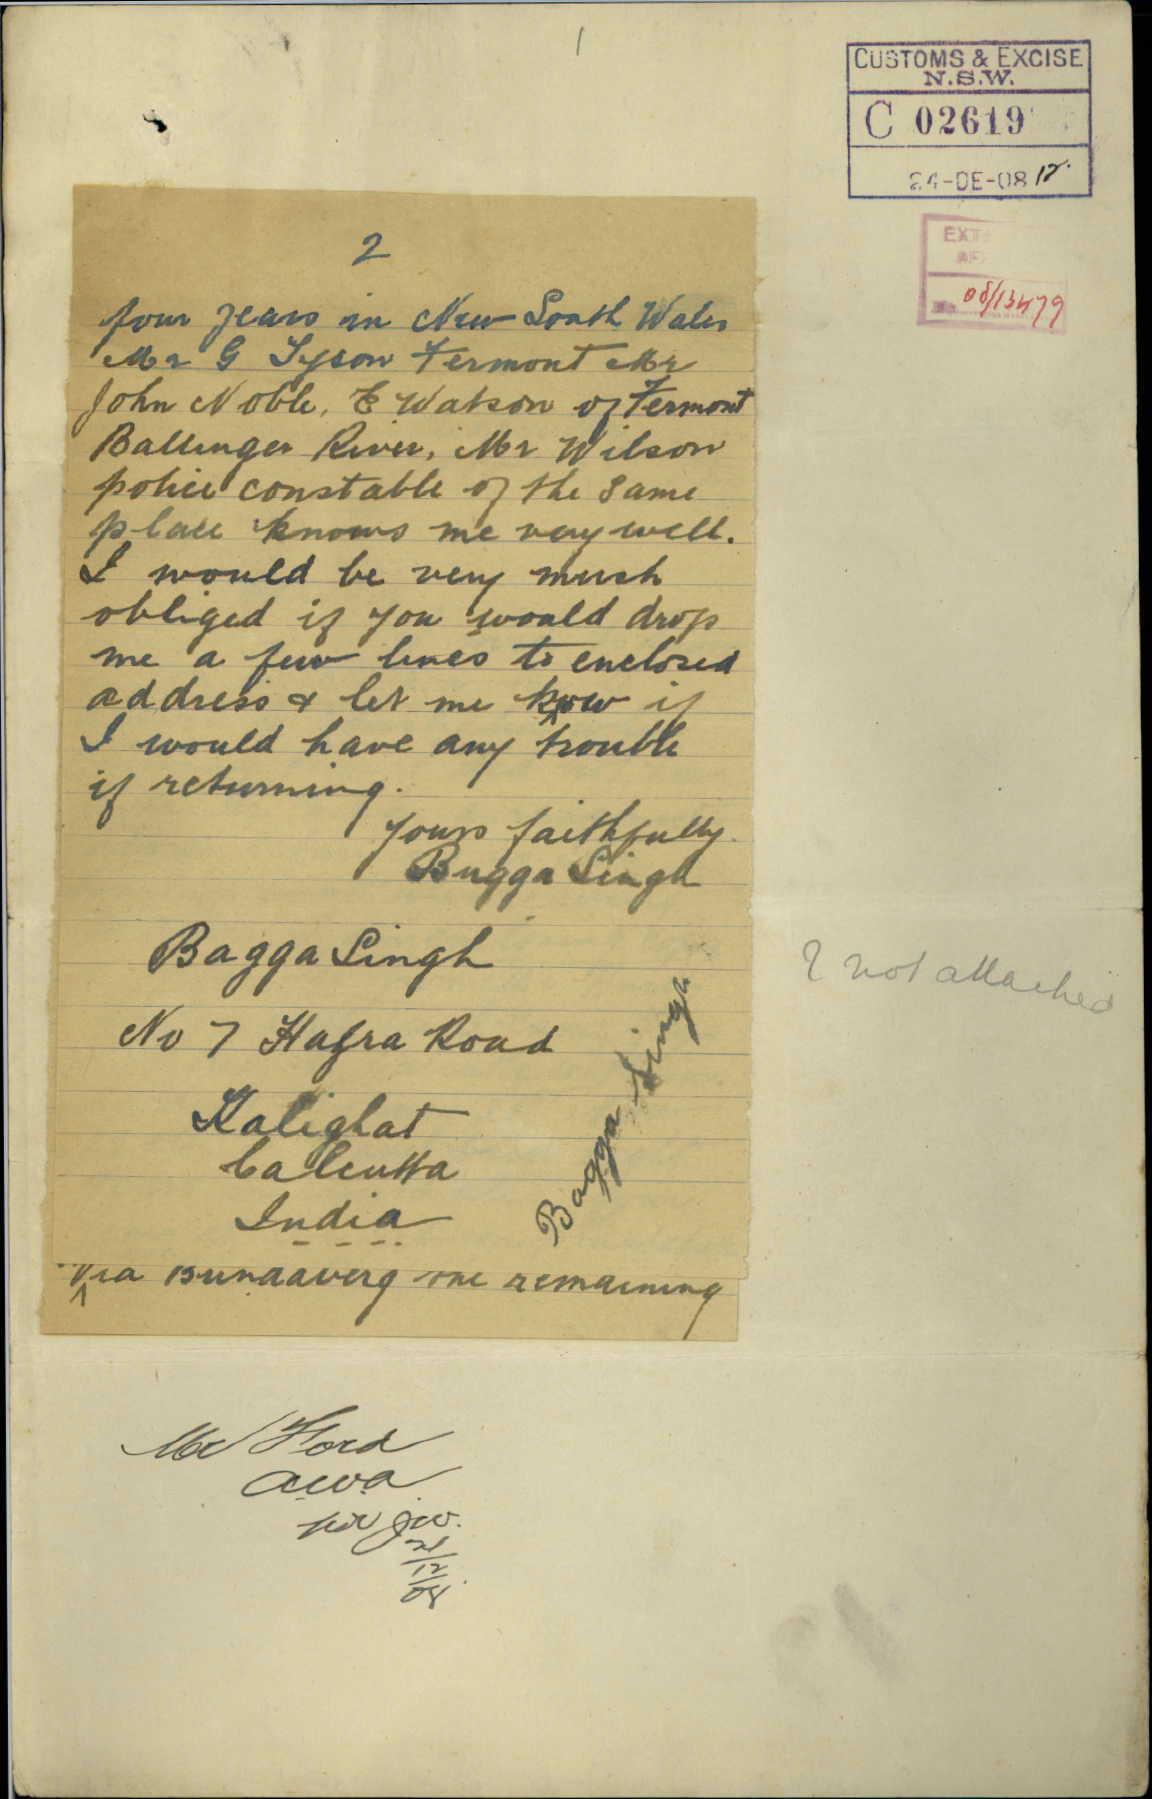 1
CUSTOMS & EXCISE
N.S.W.
C 02619
24-DE-08
08/13479
2
four years in New South Wales
Mr G Tyson Fermont Mr
John Noble, E Watson of Fermont
Ballinger River, Mr Wilson
police constable of the same
place knows me very well.
I would be very mush
obliged if you would drop
me a few lines to enclosed
address & let me know if
I would have any trouble
if returning.
Yours faithfully.
Bugga Singh
Bagga Singh
No 7 Hafra Road
Kalighat
Calcutta
India
Bagga Singh
Via Bundaberg the remaining
? not attached
Mr Ford
21/12/08